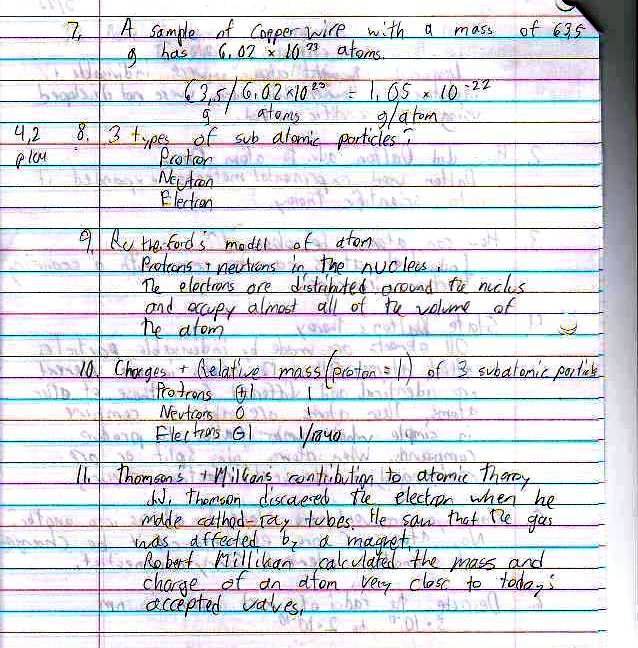 7, A sample of Copper wire with a mass of 63,5
g has 6,02 x 10 23 atoms.
63,5/6,02x10 23 = 1,05 x 10 -22
g atoms g/atom
4,2 8. 3 types of sub atomic particles:
Protron
Neutron
Electron
9. Rutherford's model of atom
Protrons + neutrons in the nucleus.
The electrons are distributed around the nucleus
and occupy almost all of the volume of
the atom
10. Charges + Relative mass (proton = 1) of 3 subatomic particles
Protrons +1 1
Neutrons 0 1
Electrons -1 1/1840
11. Thomson's + Milikan's contribution to atomic theroy
J.J. Thomson discovered the electron when he
made cathod-ray tubes. He saw that the gas
was affected by a magnet.
Robert Millikan calculated the mass and
charge of an atom very close to today's
accepted values.